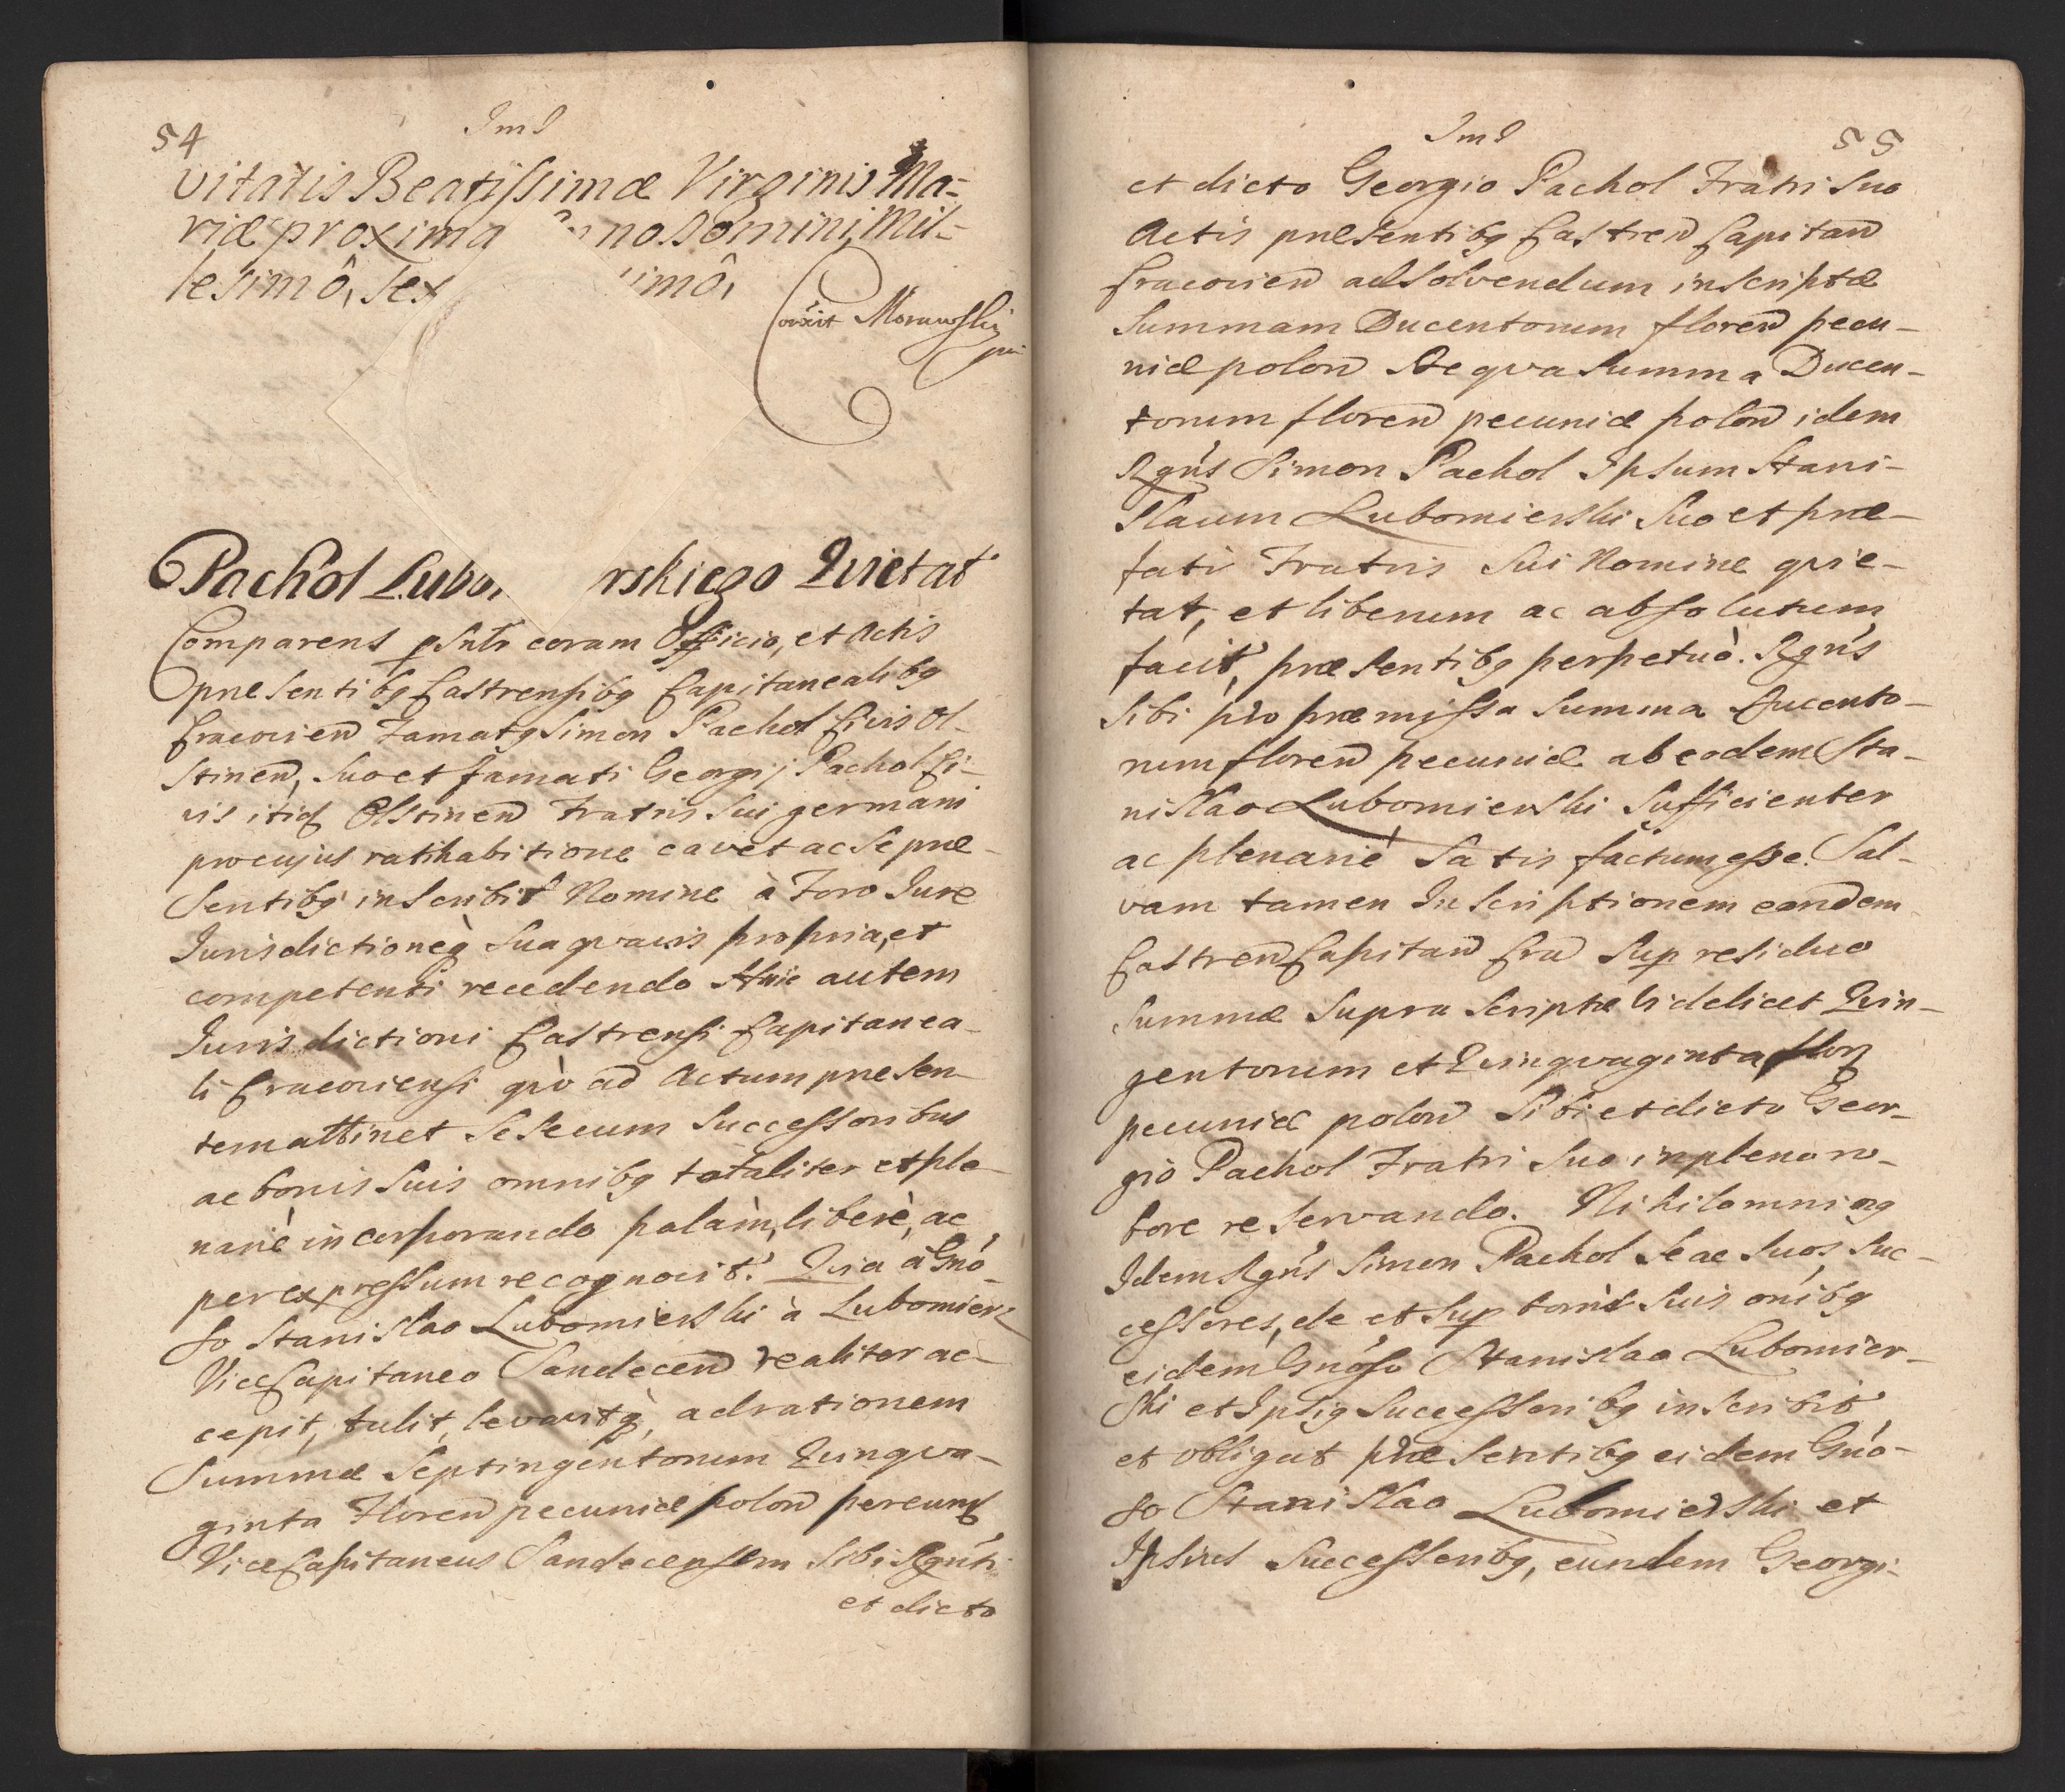 54
vitatis Beatissimæ Virginis Ma=
riæ proxima no Domini, Mil=
lesimô, sex imô,
Corexit Morawski
mp
Pachol Lubo rskiego Qvietat
Comparens psnlr coram Officio, et Actis
præsentibq Castrensibq Capitanealibq
Cracovien Famatq Simon Pachol Civis Ol-
stinen, suo et famati Georgij Pachol Ci-
vis itid Olstinen Fratris sui germani
pro cujus ratihabitione cavet ac se præ-
sentibq inscribit Nomine à Foro Jure
Jurisdictioneq̀ sua qvavis propria, et
competenti recedendo Huic autem
Jurisdictioni Castrensi Capitanea-
li Cracoviensi qvò ad Actum præsen-
tem attinet se secum Successoribus
ac bonis suis omnibq totaliter et ple-
nariè incorporando palàm, liberè, ac
per expressum recognovit. Qvia à Gno-
so Stanislao Lubomierski à Lubomierz
ViceCapitaneo Sandecen realiter ac-
cepit, tulit, levavitq̀, ad rationem
Summæ Septingentorum Qvinqva-
ginta Floren pecuniæ polon per eund
ViceCapitaneus Sandecensem sibi Rgnti
et dicto
55
et dicto Georgio Pachol Fratri suo
Actis præsentibq Castren Capitan
Cracovien ad solvendum inscriptæ
Summam Ducentorum floren pecu-
niæ polon De qva Summa Ducen-
torum floren pecuniæ polon idem
Rgns Simon Pachol Ipsum Stani-
slaum Lubomierski suo et præ-
fati Fratris sui Nomine qvie-
tat, et liberum ac absolutum
facit, præsentibq perpetuò. Rgns
sibi pro præmissa Summa Ducento-
rum floren pecuniæ ab eodem Sta-
nislao Lubomierski sufficienter
ac plenariè satis factum esse. Sal-
vam tamen Inscriptionem eandem
Castren Capitan Cra sup residuo
Summæ supra scriptæ videlicet Qvin-
gentorum et Qvinqvaginta flor
pecuniæ polon sibi et dicto Geor-
gio Pachol Fratri suo in pleno ro-
bore reservando. Nihilomniq
Idem Rgns Simon Pachol se ac suos suc-
cessores, de et sup bonis suis onibq
eidem Gnoso Stanislao Lubomier-
ski et Ipsiq Successoribq inscribit
et obligat præsentibq eidem Gno-
so Stanislao Lubomierski et
Ipsius Successoribq, eundem Georgi-